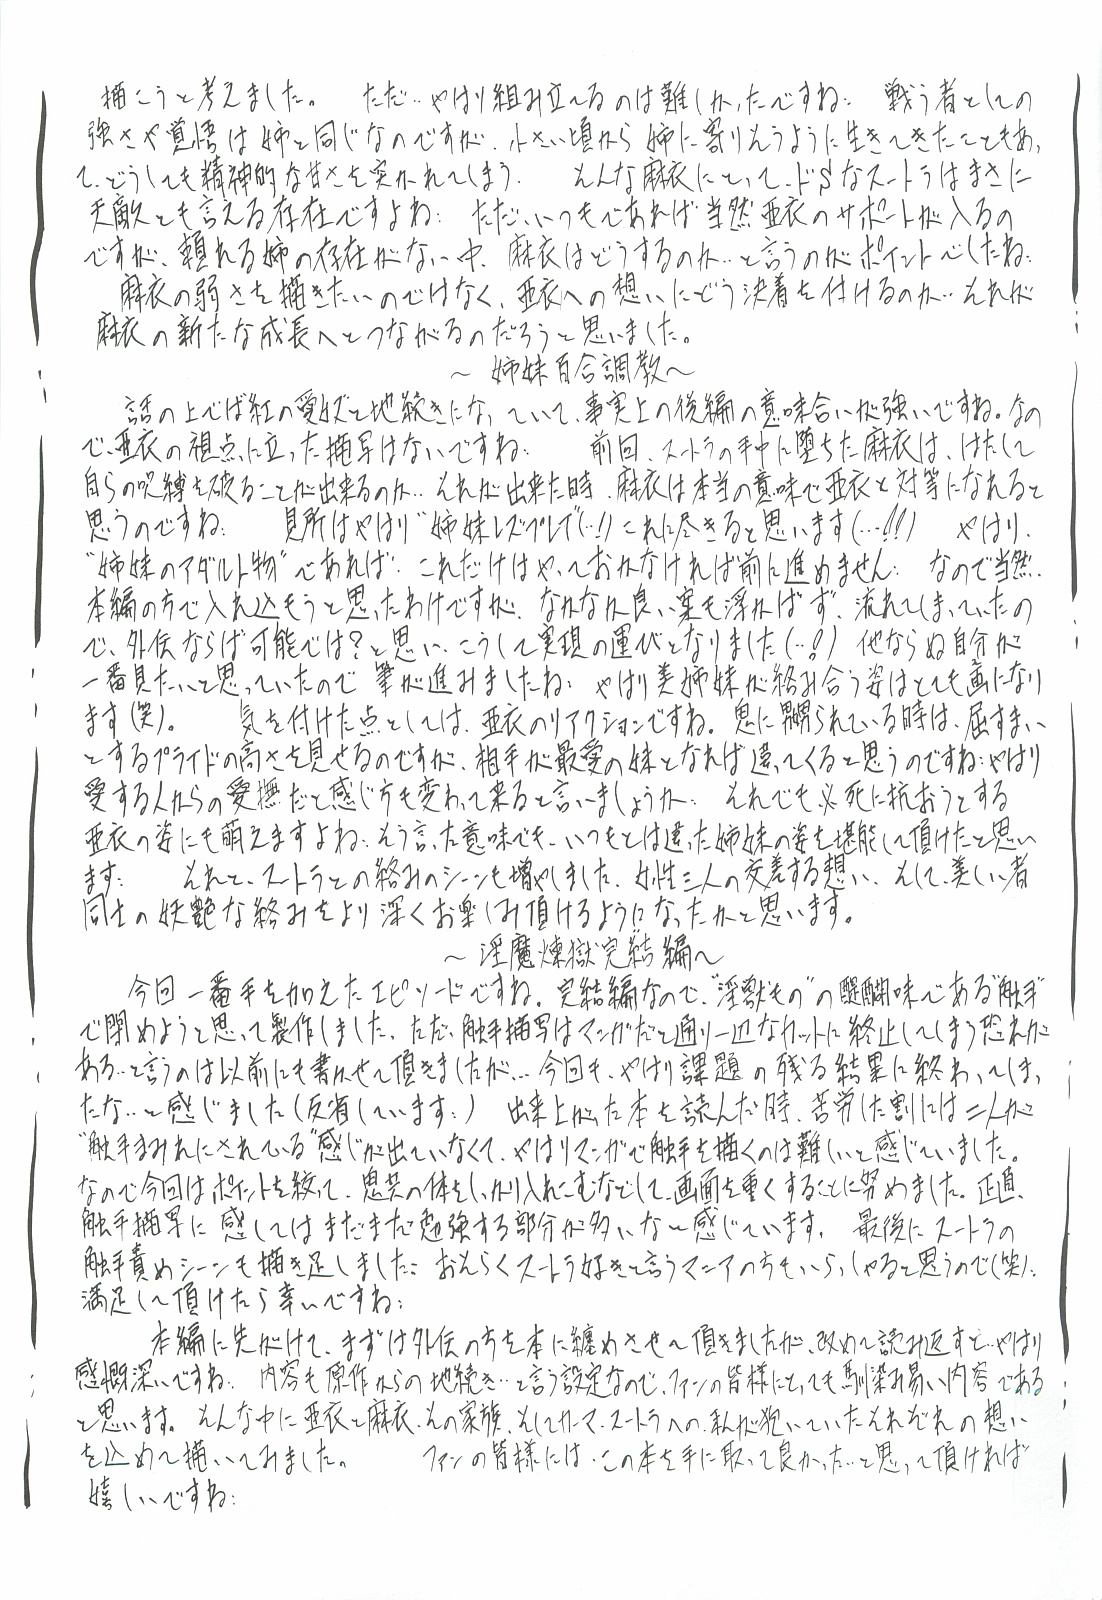 描こうと考えました。　ただ…やはり組み立てるのは難しかったですね…　戦う者としての
強さや覚悟は姉と同じなのですが、小さい頃から姉に寄りそうように生きてきたこともあっ
て、どうしても精神的な甘さを突かれてしまう…　そんな麻衣にとって、ドSなスートラはまさに
天敵とも言える存在ですよね…　ただ、いつもであれば当然亜衣のサポートが入るの
ですが、頼れる姉の存在がない中、麻衣はどうするのか…と言うのがポイントでしたね…
麻衣の弱さを描きたいのではなく、亜衣への想いにどう決着を付けるのか…それが
麻衣の新たな成長へとつながるのだろうと思いました。
～姉妹百合調教～
話の上では紅の受奴と地続きになっていて、事実上の後編の意味合いが強いですね。なの
で、亜衣の視点に立った描写はないですね…　前回、スートラの手中に堕ちた麻衣は、はたして
自らの呪縛を破ることが出来るのか…それが出来た時、麻衣は本当の意味で亜衣と対等になれると
思うのですね…　見所はやはり“姉妹レズプレイ”(…!!)これに尽きると思います(…!!!)　やはり、
“姉妹のアダルト物”であれば…これだけはやっておかなければ前に進めません…　なので当然、
本編の方で入れ込もうと思ったわけですが、なかなか良い案も浮かばず、流れてしまっていたの
で、外伝ならば可能では?と思い、こうして実現の運びとなりました(…!!)　他ならぬ自分が
一番見たいと思っていたので筆が進みましたね…　やはり美姉妹が絡み合う姿はとても画になり
ます(笑)。　気を付けた点としては、亜衣のリアクションですね。鬼に嬲られている時は、屈すまい
とするプライドの高さを見せるのですが、相手が最愛の妹となれば違ってくると思うのですね…やはり
愛する人からの愛撫だと感じ方も変わって来ると言いましょうか…　それでも必死に抗おうとする
亜衣の姿にも萌えますよね…そう言った意味でも、いつもとは違った姉妹の姿を堪能して頂けたと思い
ます…　それと、スートラとの絡みのシーンも増やしました、女性三人の交差する想い、そして、美しい者
同士の妖艶な絡みをより深くお楽しみ頂けるようになったかと思います。
～淫魔煉獄完結編～
今回一番手を加えたエピソードですね。完結編なので、“淫獣もの”の醍醐味である“触手”
で閉めようと思って製作しました、ただ、触手描写はマンガだと通り一辺なカットに終止してしまう恐れが
ある…と言うのは以前にも書かせて頂きましたが…今回も、やはり課題の残る結果に終わってしまっ
たな…と感じました(反省しています…)　出来上がった本を読んだ時、苦労した割には二人が
“触手まみれにされている”感じが出ていなくて、やはりマンガで触手を描くのは難しいと感じていました。
なので今回はポイントを絞って、鬼共の体をしっかり入れこむなどして、画面を重くすることに努めました。正直、
触手描写に感してはまだまだ勉強する部分が多いな～感じています。　最後にスートラの
触手責めシーンも描き足しました…　おそらくスートラ好きと言うマニアの方もいらっしゃると思うので(笑)…
満足して頂けたら幸いですね…
本編に先がけて、まずは外伝の方を本に纏めさせて頂きましたが、改めて読み返すと…やはり
感慨深いですね…　内容も原作からの地続き…と言う設定なので、ファンの皆様にとっても馴染み易い内容である
と思います。そんな中に亜衣と麻衣、その家族、そしてカーマ、スートラへの、私が抱いていたそれぞれの想い
を込めて描いてみました。　ファンの皆様には、この本を手に取って良かった…と思って頂ければ
嬉しいですね…